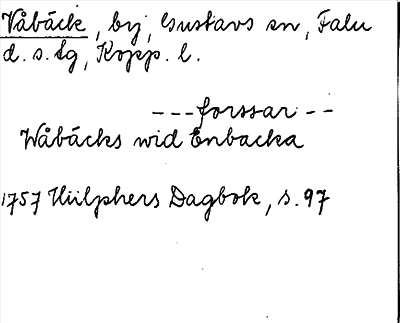 Våbäck, by, Gustavs sn, Falu
d. s. lg, Kopp. l.
---forssar--
Wåbäcks wid Enbacka
1757 Hülphers Dagbok, s. 97